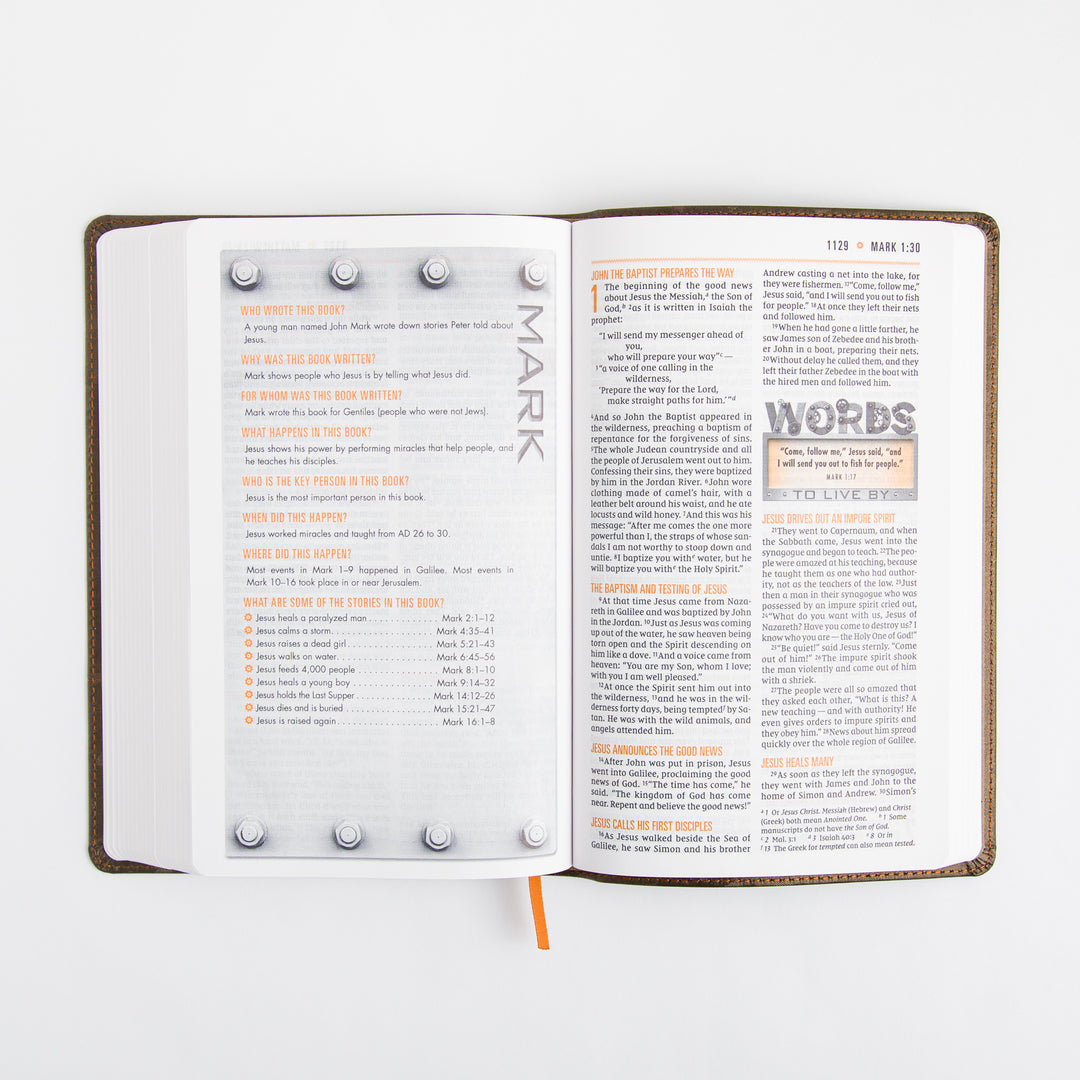 WHO WROTE THIS BOOK?
A young man named John Mark wrote down stories Peter told about
Jesus.
WHY WAS THIS BOOK WRITTEN?
Mark shows people who Jesus is by telling what Jesus did.
FOR WHOM WAS THIS BOOK WRITTEN?
Mark wrote this book for Gentiles (people who were not Jews).
WHAT HAPPENS IN THIS BOOK?
Jesus shows his power by performing miracles that help people, and
he teaches his disciples.
WHO IS THE KEY PERSON IN THIS BOOK?
Jesus is the most important person in this book.
WHEN DID THIS HAPPEN?
Jesus worked miracles and taught from AD 26 to 30.
WHERE DID THIS HAPPEN?
Most events in Mark 1–9 happened in Galilee. Most events in
Mark 10–16 took place in or near Jerusalem.
WHAT ARE SOME OF THE STORIES IN THIS BOOK?
Jesus heals a paralyzed man . . . . . . . . . . . . . Mark 2:1–12
Jesus calms a storm. . . . . . . . . . . . . . . . . . . Mark 4:35–41
Jesus raises a dead girl . . . . . . . . . . . . . . . . Mark 5:21–43
Jesus walks on water. . . . . . . . . . . . . . . . . . Mark 6:45–56
Jesus feeds 4,000 people . . . . . . . . . . . . . . . Mark 8:1–10
Jesus heals a young boy . . . . . . . . . . . . . . . Mark 9:14–32
Jesus holds the Last Supper . . . . . . . . . . . . . Mark 14:12–26
Jesus dies and is buried . . . . . . . . . . . . . . . Mark 15:21–47
Jesus is raised again . . . . . . . . . . . . . . . . . . Mark 16:1–8
MARK
1129 MARK 1:30
JOHN THE BAPTIST PREPARES THE WAY
1 The beginning of the good news
about Jesus the Messiah,a the Son of
God,b 2as it is written in Isaiah the
prophet:
“I will send my messenger ahead of
you,
who will prepare your way”c —
3“a voice of one calling in the
wilderness,
‘Prepare the way for the Lord,
make straight paths for him.’ ”d
4And so John the Baptist appeared in
the wilderness, preaching a baptism of
repentance for the forgiveness of sins.
5The whole Judean countryside and all
the people of Jerusalem went out to him.
Confessing their sins, they were baptized
by him in the Jordan River. 6John wore
clothing made of camel’s hair, with a
leather belt around his waist, and he ate
locusts and wild honey. 7And this was his
message: “After me comes the one more
powerful than I, the straps of whose san-
dals I am not worthy to stoop down and
untie. 8I baptize you withe water, but he
will baptize you withe the Holy Spirit.”
THE BAPTISM AND TESTING OF JESUS
9At that time Jesus came from Naza-
reth in Galilee and was baptized by John
in the Jordan. 10Just as Jesus was coming
up out of the water, he saw heaven being
torn open and the Spirit descending on
him like a dove. 11And a voice came from
heaven: “You are my Son, whom I love;
with you I am well pleased.”
12At once the Spirit sent him out into
the wilderness, 13and he was in the wil-
derness forty days, being temptedf by Sa-
tan. He was with the wild animals, and
angels attended him.
JESUS ANNOUNCES THE GOOD NEWS
14After John was put in prison, Jesus
went into Galilee, proclaiming the good
news of God. 15“The time has come,” he
said. “The kingdom of God has come
near. Repent and believe the good news!”
JESUS CALLS HIS FIRST DISCIPLES
16As Jesus walked beside the Sea of
Galilee, he saw Simon and his brother
Andrew casting a net into the lake, for
they were fishermen. 17“Come, follow me,”
Jesus said, “and I will send you out to fish
for people.” 18At once they left their nets
and followed him.
19When he had gone a little farther, he
saw James son of Zebedee and his broth-
er John in a boat, preparing their nets.
20Without delay he called them, and they
left their father Zebedee in the boat with
the hired men and followed him.
WORDS
“Come, follow me,” Jesus said, “and
I will send you out to fish for people.”
MARK 1:17
TO LIVE BY
JESUS DRIVES OUT AN IMPURE SPIRIT
21They went to Capernaum, and when
the Sabbath came, Jesus went into the
synagogue and began to teach. 22The peo-
ple were amazed at his teaching, because
he taught them as one who had author-
ity, not as the teachers of the law. 23Just
then a man in their synagogue who was
possessed by an impure spirit cried out,
24“What do you want with us, Jesus of
Nazareth? Have you come to destroy us? I
know who you are — the Holy One of God!”
25“Be quiet!” said Jesus sternly. “Come
out of him!” 26The impure spirit shook
the man violently and came out of him
with a shriek.
27The people were all so amazed that
they asked each other, “What is this? A
new teaching — and with authority! He
even gives orders to impure spirits and
they obey him.” 28News about him spread
quickly over the whole region of Galilee.
JESUS HEALS MANY
29As soon as they left the synagogue,
they went with James and John to the
home of Simon and Andrew. 30Simon’s
a 1 Or Jesus Christ. Messiah (Hebrew) and Christ
(Greek) both mean Anointed One. b 1 Some
manuscripts do not have the Son of God.
c 2 Mal. 3:1 d 3 Isaiah 40:3 e 8 Or in
f 13 The Greek for tempted can also mean tested.